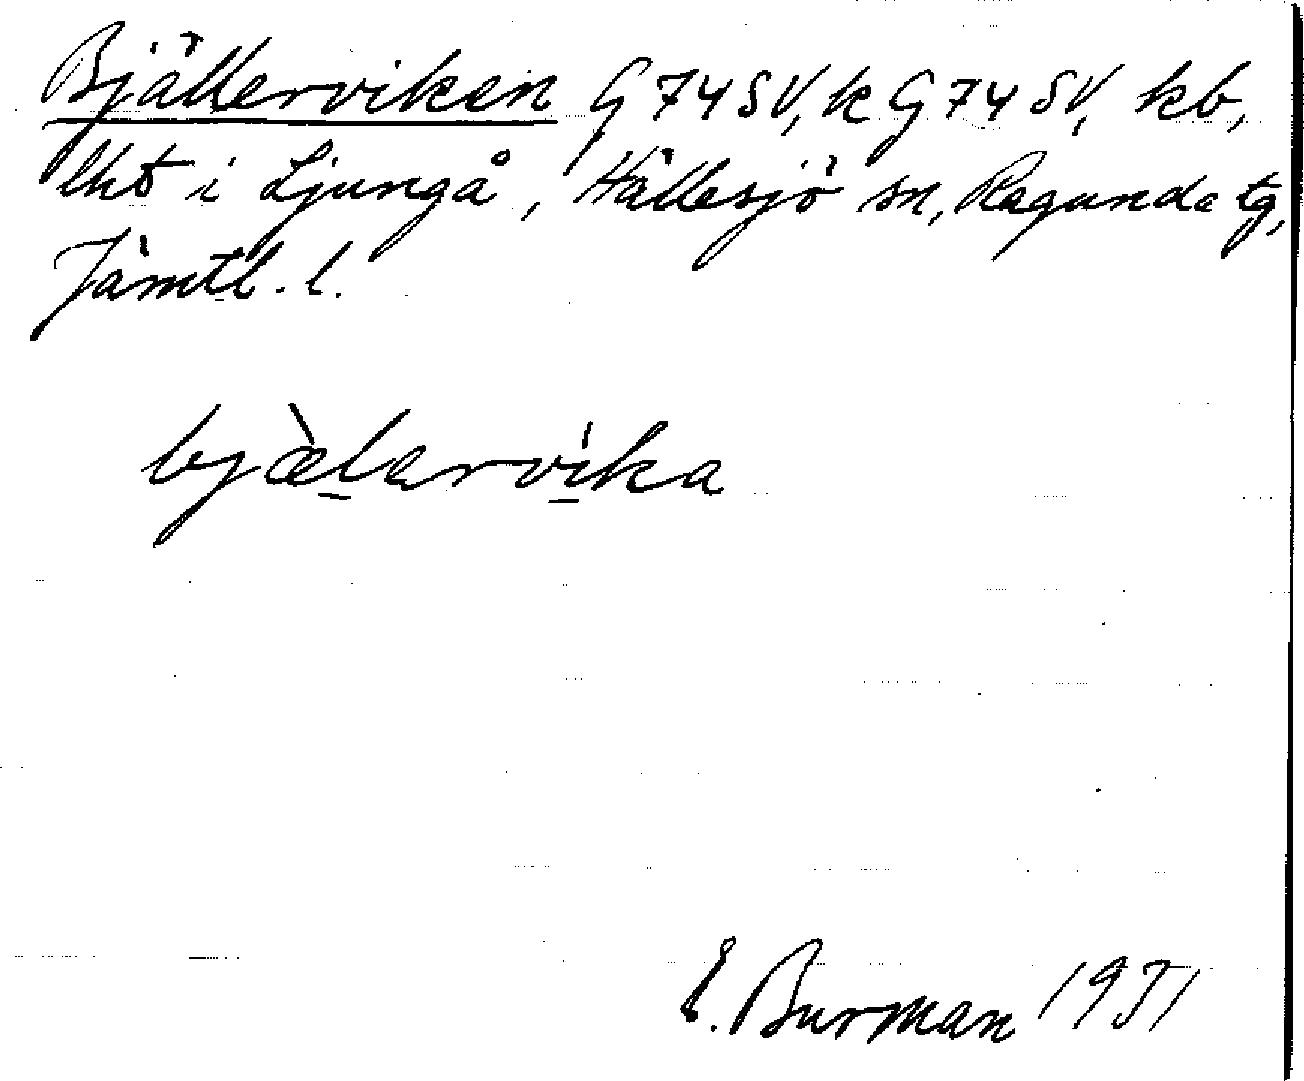 Bjällerviken G 74 SV, k G 74 SV, kb,
lht i Ljungå, Hällesjö sn, Ragunda tg,
Jämtl. l.
bjæ̀l̠arvi̠ka
E. Burman